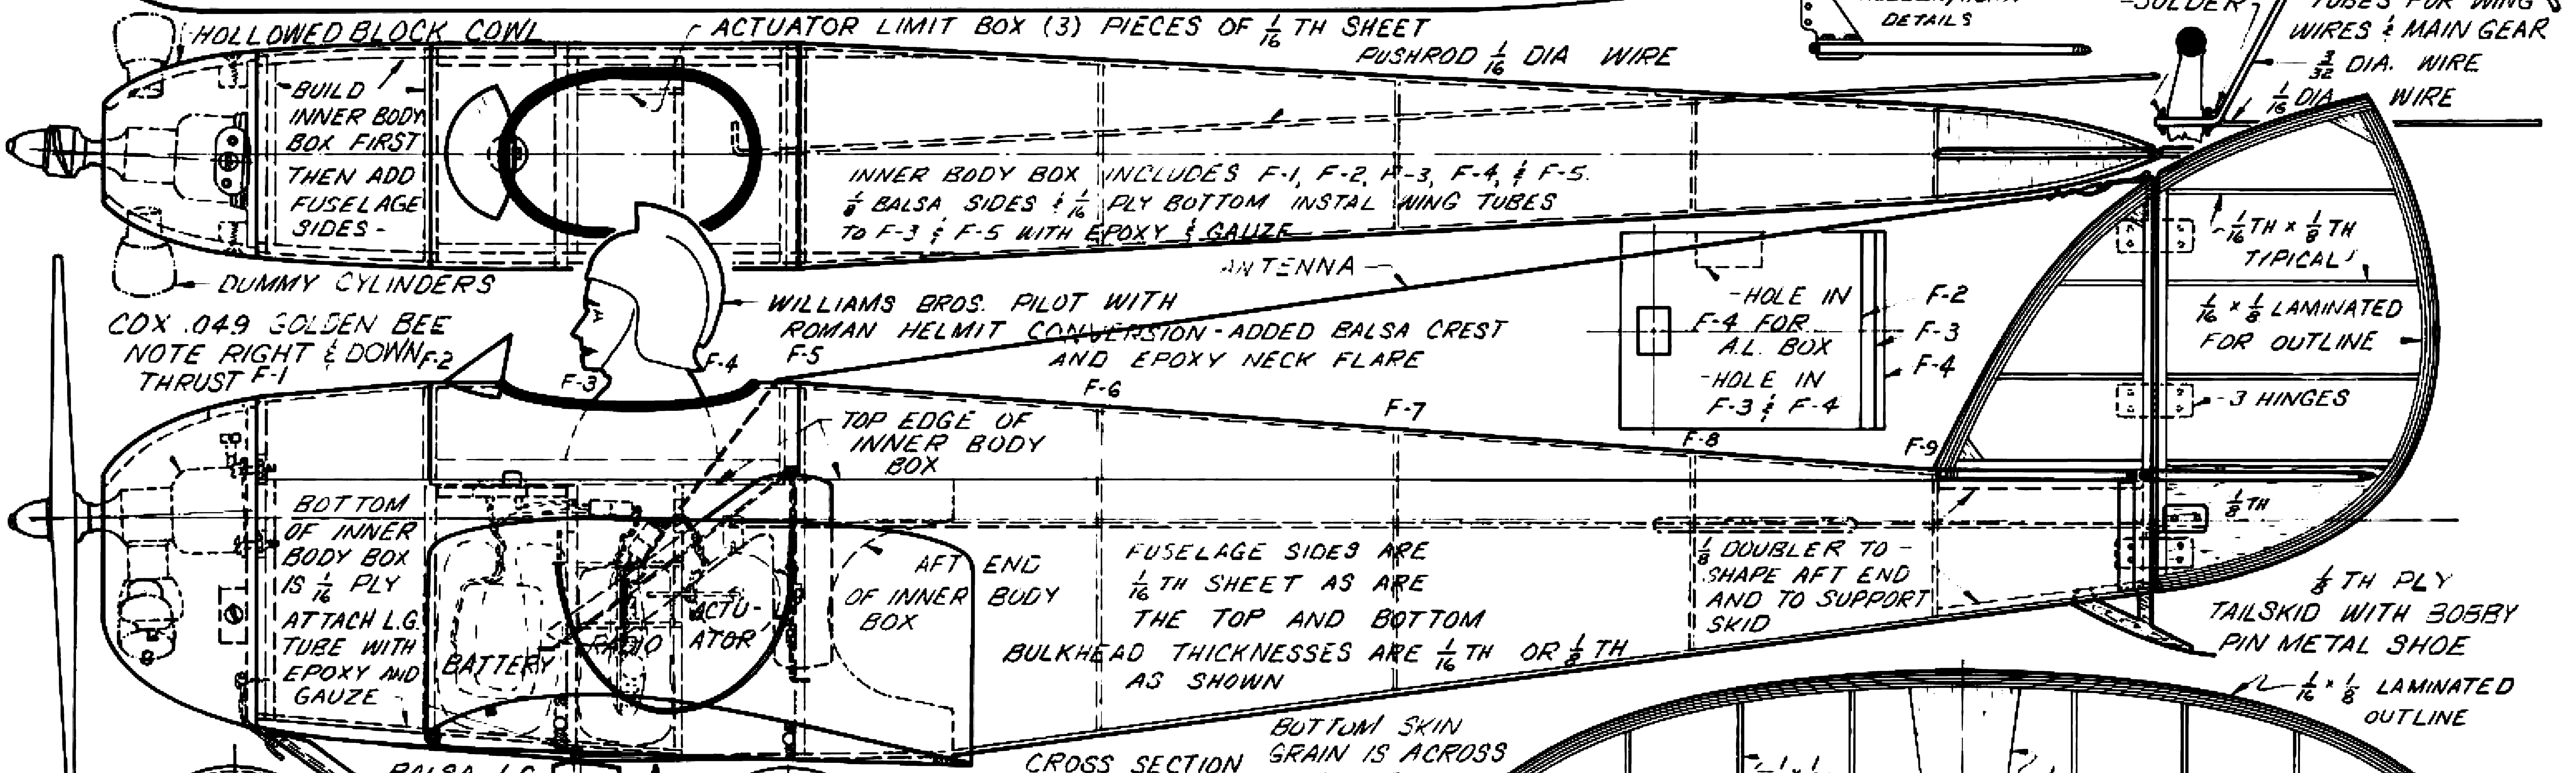 HOLLOWED BLOCK COWL
ACTUATOR LIMIT BOX (3) PIECES OF 1/16 TH SHEET
PUSHROD 1/16 DIA WIRE
DETAILS
-SOLDER
TUBES FOR WING
WIRES & MAIN GEAR
3/32 DIA. WIRE
1/16 DIA WIRE
-BUILD
INNER BODY
BOX FIRST
THEN ADD
FUSELAGE
SIDES-
INNER BODY BOX INCLUDES F-1, F-2, F-3, F-4, & F-5.
1/8 BALSA SIDES & 1/16 PLY BOTTOM INSTAL WING TUBES
TO F-3 & F-5 WITH EPOXY & GAUZE
DUMMY CYLINDERS
ANTENNA
COX .049 GOLDEN BEE
NOTE RIGHT & DOWN
THRUST
F-1
F-2
F-3
F-4
F-5
F-6
F-7
F-8
F-9
WILLIAMS BROS. PILOT WITH
ROMAN HELMIT CONVERSION-ADDED BALSA CREST
AND EPOXY NECK FLARE
-HOLE IN
F-4 FOR
A.L. BOX
-HOLE IN
F-3 & F-4
F-2
F-3
F-4
1/16 TH x 1/8 TH
TIPICAL
1/16 x 1/8 LAMINATED
FOR OUTLINE
-3 HINGES
1/8 TH
TOP EDGE OF
INNER BODY
BOX
BOTTOM
OF INNER
BODY BOX
IS 1/16 PLY
ATTACH L.G.
TUBE WITH
EPOXY AND
GAUZE
BATTERY
RADIO
ACTU-
ATOR
AFT END
OF INNER BODY
BOX
FUSELAGE SIDES ARE
1/16 TH SHEET AS ARE
THE TOP AND BOTTOM
BULKHEAD THICKNESSES ARE 1/16 TH OR 1/8 TH
AS SHOWN
1/8 DOUBLER TO -
SHAPE AFT END
AND TO SUPPORT
SKID
1/8 TH PLY
TAILSKID WITH BOBBY
PIN METAL SHOE
1/16 x 1/8 LAMINATED
OUTLINE
BOTTOM SKIN
GRAIN IS ACROSS
CROSS SECTION
BALSA L.G.